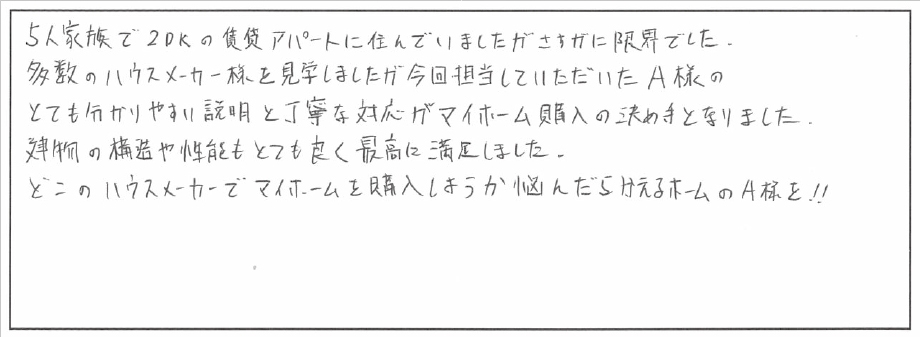 5人家族で2DKの賃貸アパートに住んでいましたがさすがに限界でした.
多数のハウスメーカー様を見学しましたが今回担当していただいたA様の
とても分かりやすい説明と丁寧な対応がマイホーム購入の決め手となりました.
建物の構造や性能もとても良く最高に満足しました.
どこのハウスメーカーでマイホームを購入しようか悩んだら ホームのA様を!!